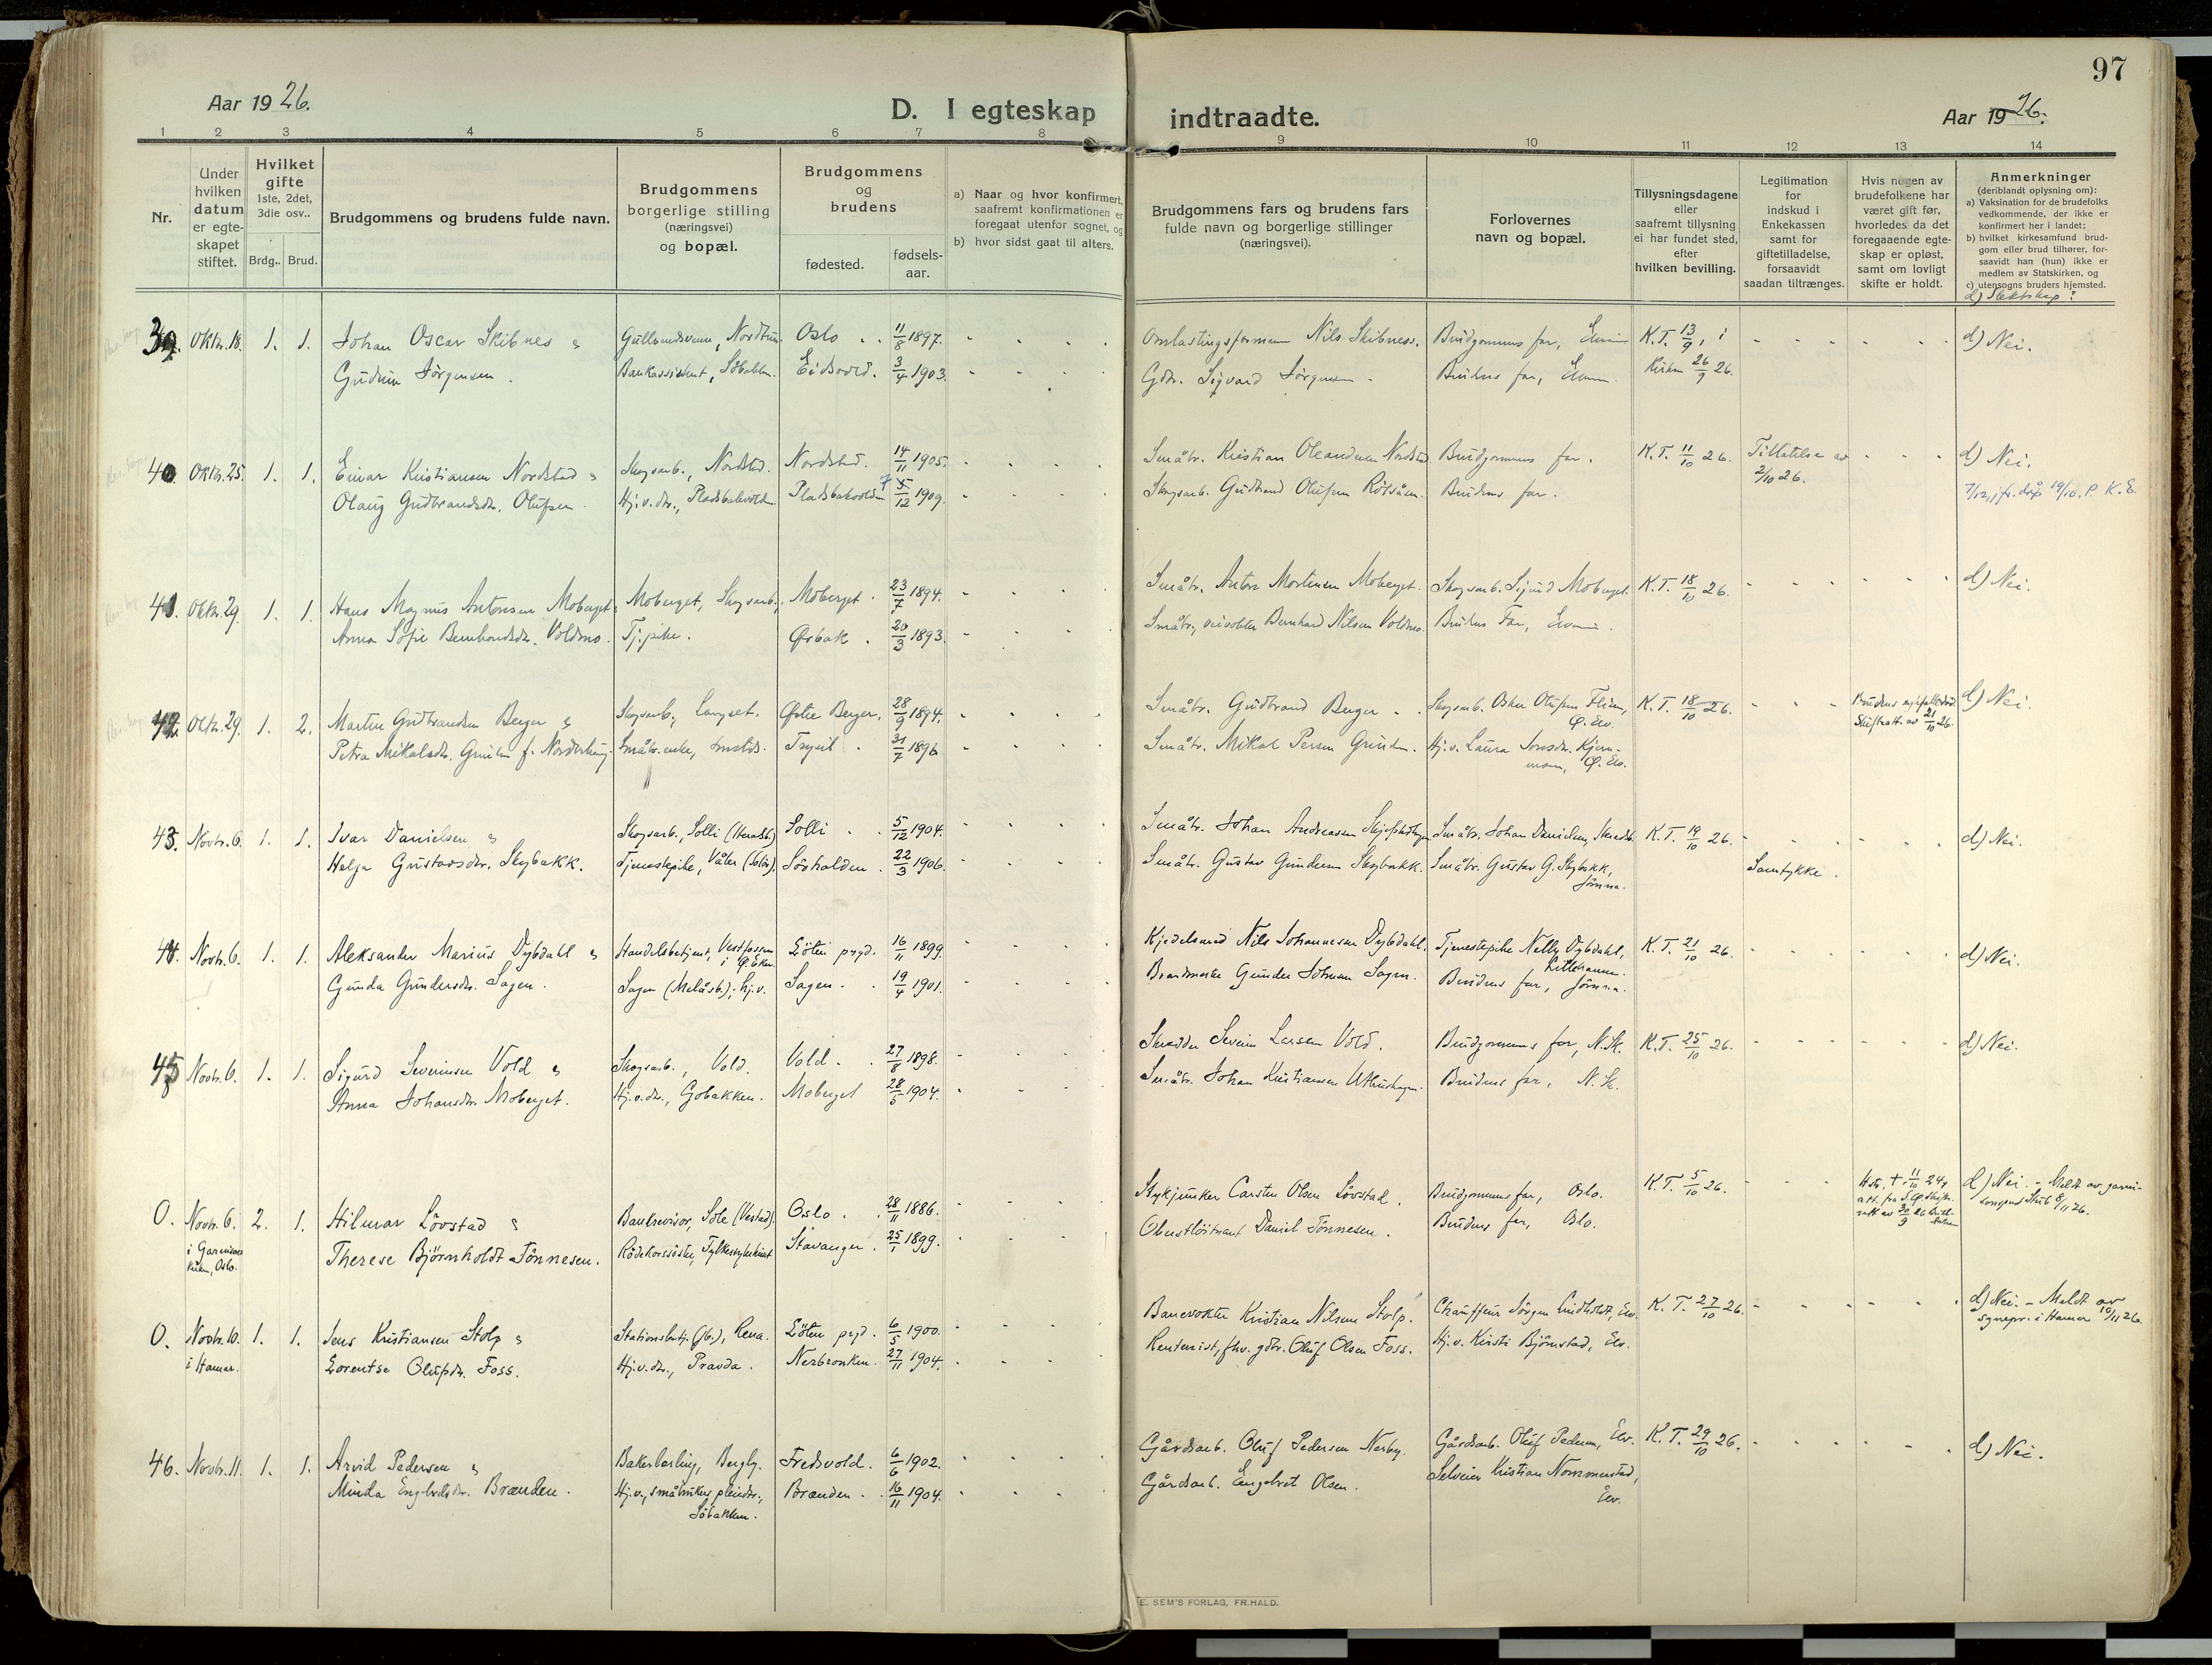 97
Aar 1926.
D. I egteskap indtraadte.
Aar 1926.
1 2 3 4 5 6 7 8 9 10 11 12 13 14
Nr.
Under hvilken datum er egte-skapet stiftet.
Hvilket gifte 1ste, 2det, 3die osv..
Brdg.. Brud.
Brudgommens og brudens fulde navn.
Brudgommens borgerlige stilling (næringsvei) og bopæl.
Brudgommens og brudens
fødested.
fødsels-aar.
a) Naar og hvor konfirmert, saafremt konfirmationen er foregaat utenfor sognet, og
b) hvor sidst gaat til alters.
Brudgommens fars og brudens fars fulde navn og borgerlige stillinger (næringsvei).
Forlovernes navn og bopæl.
Tillysningsdagene eller saafremt tillysning ei har fundet sted, efter hvilken bevilling.
Legitimation for indskud i Enkekassen samt for giftetilladelse, forsaavidt saadan tiltrænges.
Hvis nogen av brudefolkene har været gift før, hvorledes da det foregaaende egte-skap er opløst, samt om lovligt skifte er holdt.
Anmerkninger
(deriblandt oplysning om):
a) Vaksination for de brudefolks vedkommende, der ikke er konfirmert her i landet;
b) hvilket kirkesamfund brud-gom eller brud tilhører, for-saavidt han (hun) ikke er medlem av Statskirken, og
c) utensogns bruders hjemsted.
d) Slektskap?
39. Oktr. 18. 1. 1. Johan Oscar Skibnes Oslo 11/8 1897. Omlastingsformann Nils Skibness. Brudgommens far, K.T. 13/9, i d) Nei.
Gudrun Jørgensen. Bankassistent, Eidsvold. 3/4 1903. Gdbr. Sigvard Jørgensen Brudens far, Kirken 26/9 26.
40. Oktr. 25. 1. 1. Einar Kristiansen Nordstad Skogsarb., Nordstad. Nordstad. 14/11 1905. Småbr. Kristian Oleandersen Nordstad Brudgommens far. K.T. 11/10 26. Tillatelse av d) Nei.
Olaug Gudbrandsdr. Olufsen Hj.v.dr., Pladsbakvolden Pladsbakvolden 7 5/12 1909. Skogsarb. Gudbrand Olufsen Brudens far. 2/10 26. 7/12, jfr. dåp 19/10. P. K. E.
41. Oktr. 29. 1. 1. Hans Magnus Antonsen Moberget Moberget, Skogsarb. Moberget. 23/7 1894. Småbr. Anton Mortensen Moberget. Skogsarb. Sigurd Moberget. K.T. 18/10 26. d) Nei.
Anna Sofie Bernhardsdr. Voldmo. Tj.pike. Øsbak. 20/3 1893. Småbr., veivokter Bernhard Nilsen Voldmo. Brudens Far,
42. Oktr. 29. 1. 2. Martin Gudbrandsen Berger Skogsarb., Langset. Østre Berger. 28/9 1894. Småbr. Gudbrand Berger Skogsarb. Oskar Olufsen K.T. 18/10 26. d) Nei.
Ø. Elv. Skifteatt. av 21/10 26.
Petra Mikalsdr. f. Småbr. enke, Trysil 31/7 1896 Småbr. Mikal Persen Hj.v. Laura
Ø. Elv.
43. Novbr. 6. 1. 1. Ivar Danielsen Skogsarb., Solli Solli 5/12 1904. Småbr. Johan Andreassen Småbr. Johan Danielsen, K.T. 19/10 26. d) Nei.
Helga Gustavsdr. Skybakk. Tjenestepike, Våler (Solør). Sørhalden. 22/3 1906. Småbr. Gustav Gundersen Skybakk. Småbr. Gustav G. Skybakk, Samtykke.
Jømna.
44. Novbr. 6. 1. 1. Aleksander Marius Dybdahl Handelsbetjent, Vestfossen Løten prgd. 16/11 1899. Kjedelsmed Nils Johannesen Dybdahl. Tjenestepike Nelly Dybdahl, K.T. 21/10 26. d) Nei.
i Ø. Eker. Lillehammer.
Gunda Gundersdr. Sagen. Sagen (Melåsb.); hj.v. Sagen. 19/4 1901. Gunder Johnsen Sagen. Brudens far, Jømna.
45 Novbr. 6. 1. 1. Sigurd Severinsen Vold Skogsarb., Vold. Vold. 27/8 1898. Skredder Severin Larsen Vold. Brudgommens far, N. Sk. K.T. 25/10 26. d) Nei.
Anna Johansdr. Moberget. Hj.v.dr., Gobakken. Moberget 28/5 1904. Småbr. Johan Kristiansen Brudens far, N. Sk.
0. Novbr. 6. 2. 1. Hilmar Løvstad Bankrevisor, Sole (Vestad). Oslo. 28/11 1886. Stykjunker Carsten Olsen Løvstad. Brudgommens far, Oslo. K.T. 5/10 26. d) Nei. - Meldt av garni-
i Garnisons sonsprest Stub 8/11 26.
kirken, Oslo. Therese Bjørnholdt Tønnesen. Rødekorssøster, Stavanger. 25/1 1899. Oberstløitnant Daniel Tønnesen. Brudens far, Oslo.
0. Novbr. 10. 1. 1. Jens Kristiansen Stolp Stationsbetj. (jb.), Rena. Løten prgd. 6/5 1900. Banevokter Kristian Nilsen Stolp. Chauffeur Jørgen Lindholdt, Elv. K.T. 27/10 26. d) Nei. - Meldt av
i Hamar. sognepr. i Hamar 10/11 26.
Lorentse Olufsdr. Foss. Hj.v.dr., Pravda. Nerbronken. 27/11 1904. Rentenist, fhv. gdbr. Oluf Olsen Foss. Hj.v. Kirsti Bjørnstad, Elv.
46. Novbr. 11. 1. 1. Arvid Pedersen Bakerlærling, Bergly. Fredsvold. 6/6 1902. Gårdsarb. Oluf Pedersen Nerby. Gårdsarb. Oluf Pedersen, Elv. K.T. 29/10 26. d) Nei.
Minda Engbretsdr. Brænden. Hj.v., småbrukers pleiedtr., Brænden. 16/11 1904. Gårdsarb. Engebret Olsen. Selveier Kristian Nommerstad,
Søbakken. Elv.
E. SEM'S FORLAG, FR.HALD.